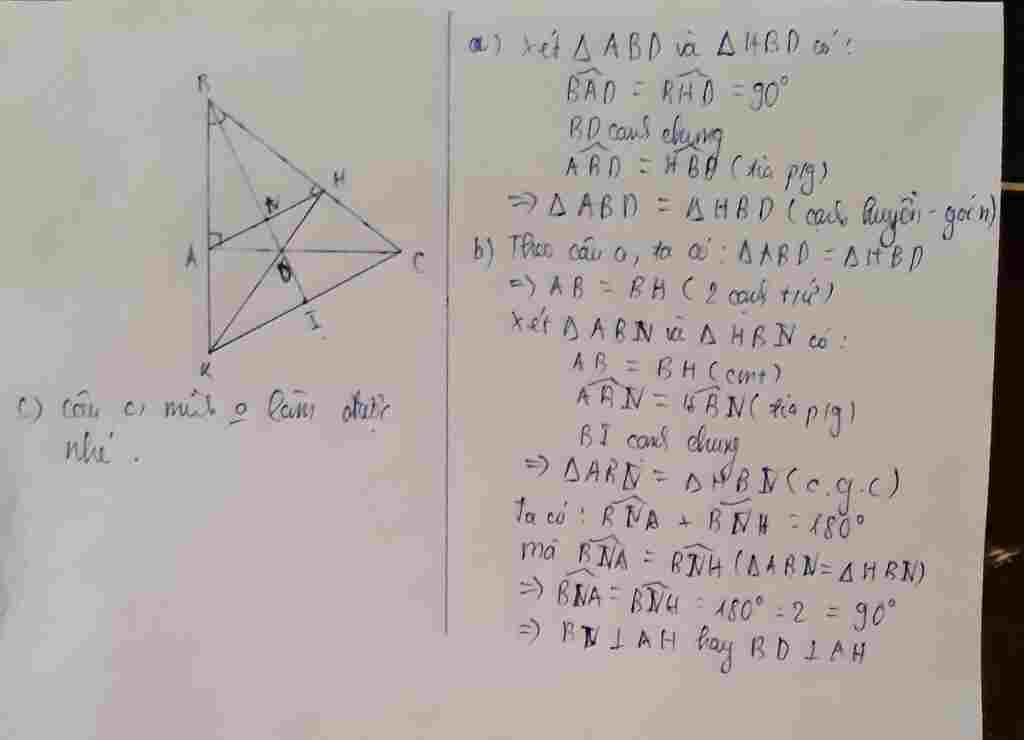 B
H
N
A
C
D
I
K
c) Câu c, mình o làm được
nhé.
a) Xét Δ ABD và Δ HBD có:
BAD = BHD = 90°
BD cạnh chung
ABD = HBD (tia p/g)
=> Δ ABD = Δ HBD (cạnh huyền - góc n)
b) Theo câu a, ta có: Δ ABD = Δ HBD
=> AB = BH (2 cạnh t/ứ)
Xét Δ ABN và Δ HBN có:
AB = BH (cmt)
ABN = HBN (tia p/g)
BI cạnh chung
=> Δ ABN = Δ HBN (c.g.c)
Ta có: BNA + BNH = 180°
mà BNA = BNH (Δ ABN = Δ HBN)
=> BNA = BNH = 180° : 2 = 90°
=> BN ⊥ AH hay BD ⊥ AH